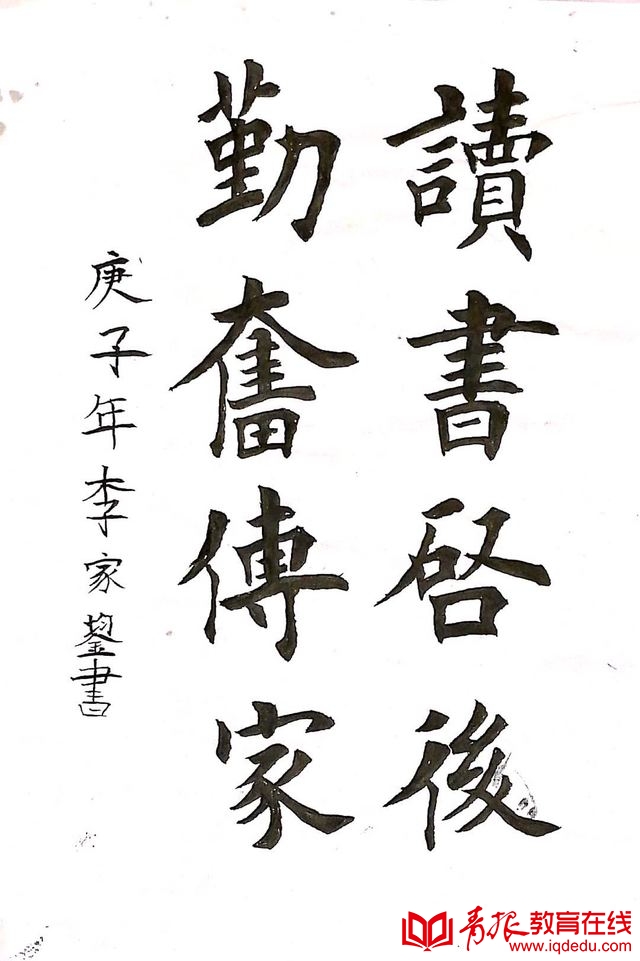 讀書啓後
勤奮傳家
庚子年李家鋆書
青报教育在线
www.iqdedu.com